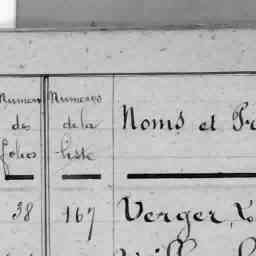 Numéros des folios
Numéros de la liste
Noms et Pr
38 167 Verger,